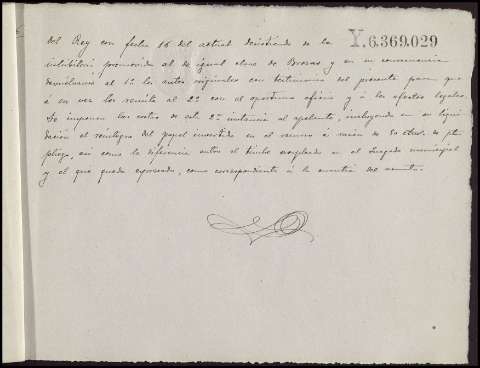 Y.6.369.029
del Rey con fecha 16 del actual desistiendo de la
inhibitoria promovida al de igual clase de Brozas y en su consecuencia
devuélvanse al 1º los autos originales con testimonio del presente para que
á su vez los remita al 2º con el oportuno oficio y á los efectos legales
Se imponen las costas de esta 2ª instancia al apelante, incluyendo en su liqui
dación el reintegro del papel invertido en el mismo á razón de
pliego, asi como la diferencia entre el timbre empleado en el Juzgado municipal
y el que queda espresado, como correspondiente á la cuantía del asunto.